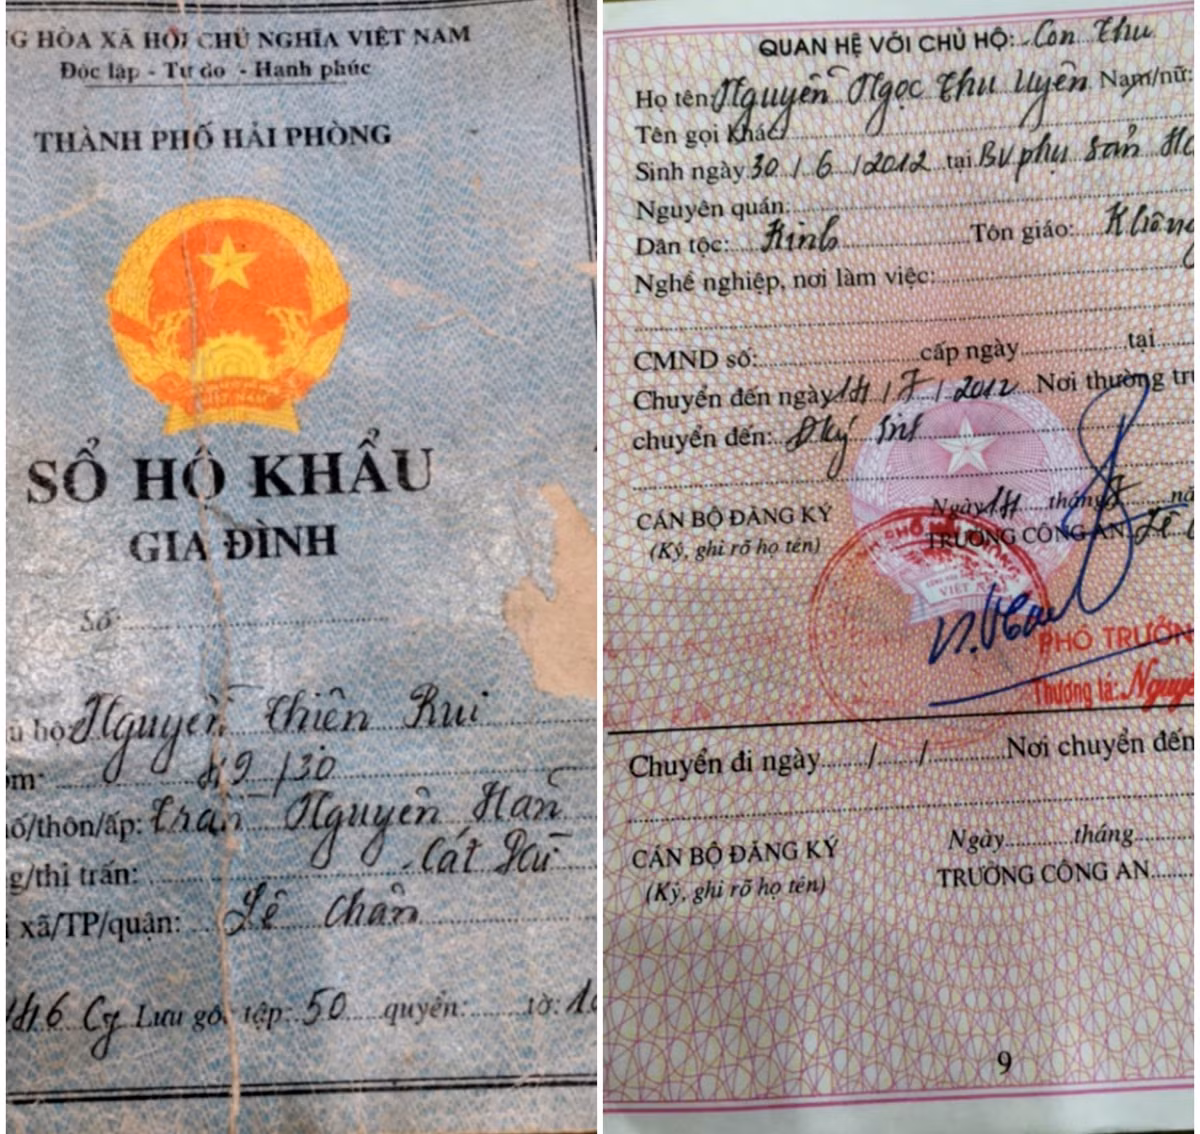 G HÒA XÃ HỘI CHỦ NGHĨA VIỆT NAM
Độc lập - Tự do - Hạnh phúc
THÀNH PHỐ HẢI PHÒNG
VIỆT NAM
SỔ HỘ KHẨU
GIA ĐÌNH
Số:
ủ hộ: Nguyễn Thiên Rui
ố/thôn/ấp: Trần Nguyên Hãn
g/thị trấn: Cát Dài
xã/TP/quận: Lê Chân
Lưu gốc tập: 50 quyển: tờ:
QUAN HỆ VỚI CHỦ HỘ: Con Thu
Họ tên: Nguyễn Ngọc Thu Uyên Nam/nữ:
Tên gọi khác:
Sinh ngày 30 / 6 / 2012 tại BV phụ sản
Nguyên quán:
Dân tộc: Kinh Tôn giáo: Không
Nghề nghiệp, nơi làm việc:
CMND số: cấp ngày tại
Chuyển đến ngày 14 / 7 / 2012 Nơi thường trú
chuyển đến: Đký sinh
CÁN BỘ ĐĂNG KÝ
(Ký, ghi rõ họ tên)
Ngày 14 tháng 7 nă
TRƯỞNG CÔNG AN Lê
VIỆT NAM
PHÓ TRƯỞN
Thượng tá: Nguyễ
Chuyển đi ngày / / Nơi chuyển đến
CÁN BỘ ĐĂNG KÝ
(Ký, ghi rõ họ tên)
Ngày tháng
TRƯỞNG CÔNG AN
9